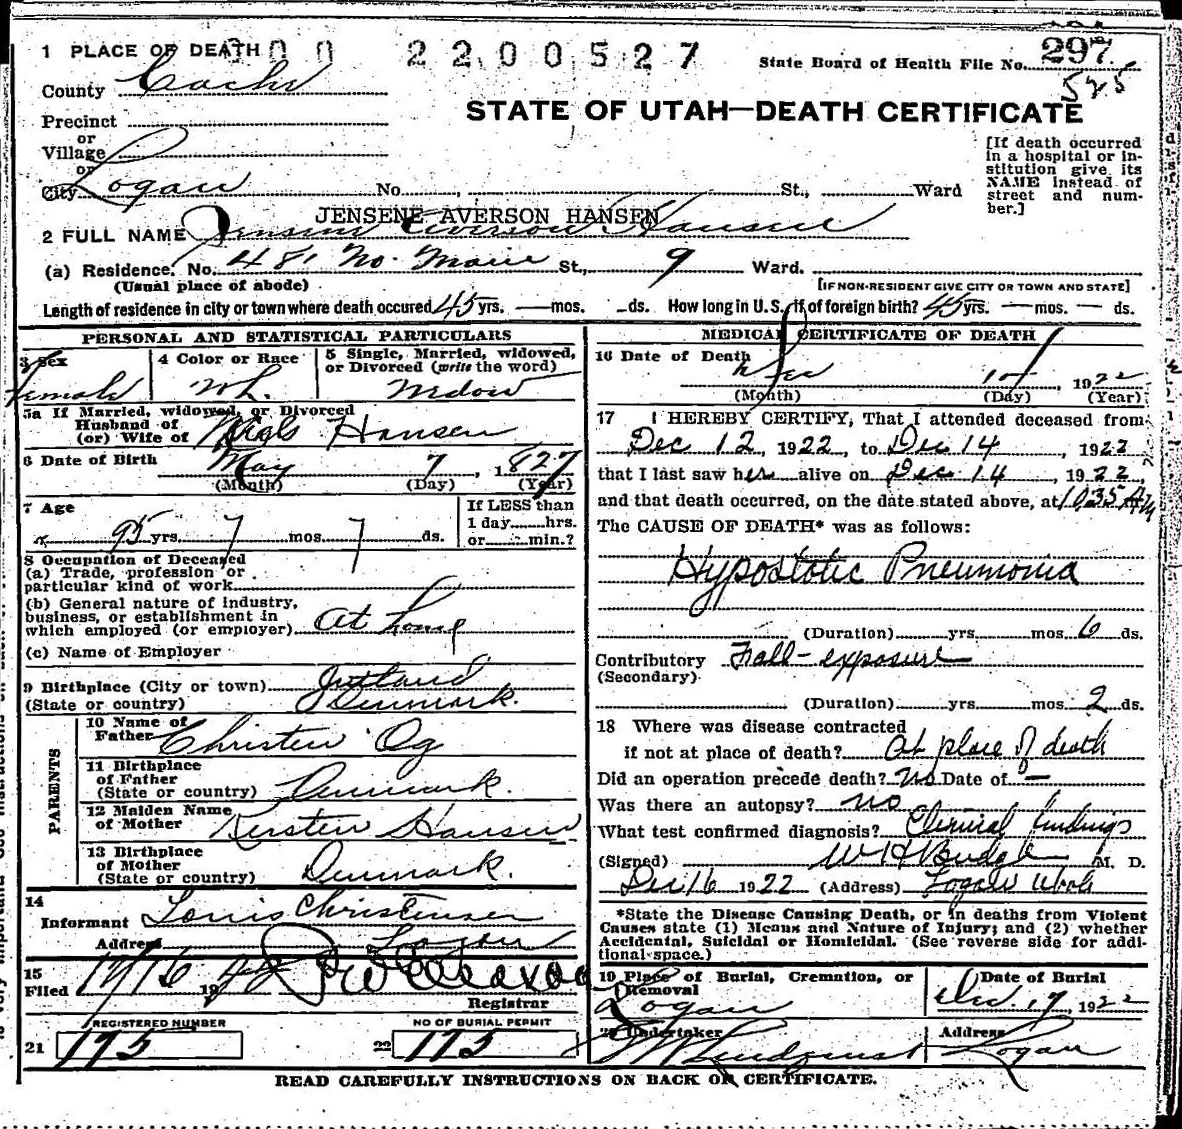 1 PLACE OF DEATH 300 2200527
State Board of Health File No. 297
525
County Cache
STATE OF UTAH—DEATH CERTIFICATE
Precinct
or
Village
or
City Logan No. St., Ward
[If death occurred in a hospital or institution give its NAME instead of street and number.]
JENSENE AVERSON HANSEN
2 FULL NAME Jensine Averson Hansen
(a) Residence. No. 481 No. Main St., 9 Ward.
(Usual place of abode) [IF NON-RESIDENT GIVE CITY OR TOWN AND STATE]
Length of residence in city or town where death occured 45 yrs. — mos. - ds. How long in U.S. if of foreign birth? 45 yrs. — mos. — ds.
PERSONAL AND STATISTICAL PARTICULARS
3 Sex
Female
4 Color or Race
Wh.
5 Single, Married, widowed, or Divorced (write the word)
Widow
5a If Married, widowed, or Divorced
Husband of
(or) Wife of Niels Hansen
6 Date of Birth May 7, 1827
(Month) (Day) (Year)
7 Age
95 yrs. 7 mos. 7 ds.
If LESS than
1 day hrs.
or min.?
8 Occupation of Deceased
(a) Trade, profession or
particular kind of work
(b) General nature of industry,
business, or establishment in
which employed (or employer) At home
(c) Name of Employer
9 Birthplace (City or town) Jutland
(State or country) Denmark.
PARENTS
10 Name of
Father Christen Og
11 Birthplace
of Father
(State or country) Denmark.
12 Maiden Name
of Mother Kersten Hansen
13 Birthplace
of Mother
(State or country) Denmark.
14
Informant Louis Christensen
Address Logan
15
Filed 12/16 1922
Registrar
REGISTERED NUMBER
21 175
NO OF BURIAL PERMIT
22 175
MEDICAL CERTIFICATE OF DEATH
16 Date of Death
Dec 14, 1922
(Month) (Day) (Year)
17 I HEREBY CERTIFY, That I attended deceased from
Dec 12, 1922, to Dec 14, 1922
that I last saw her alive on Dec 14, 1922,
and that death occurred, on the date stated above, at 10.35 AM
The CAUSE OF DEATH* was as follows:
Hypostotic Pneumonia
(Duration) yrs. mos 6 ds.
Contributory Fall-exposure
(Secondary)
(Duration) yrs. mos. 2 ds.
18 Where was disease contracted
if not at place of death? At place of death
Did an operation precede death? No Date of —
Was there an autopsy? no
What test confirmed diagnosis? Clinical findings
(Signed) W H Budge M. D.
Dec 16 1922 (Address) Logan Utah
*State the Disease Causing Death, or in deaths from Violent
Causes state (1) Means and Nature of Injury; and (2) whether
Accidental, Suicidal or Homicidal. (See reverse side for addi-
tional space.)
19 Place of Burial, Cremation, or
Removal
Logan
Date of Burial
Dec. 17 1922
20 Undertaker
Lindquist
Address
Logan
READ CAREFULLY INSTRUCTIONS ON BACK OF CERTIFICATE.